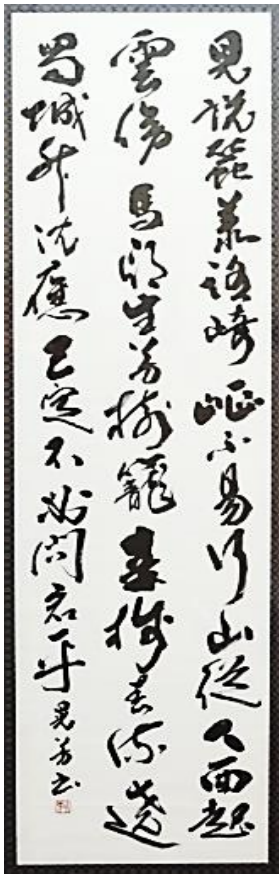 見説蚕叢路崎嶇不易行山從人面起
雲傍馬頭生芳樹籠秦棧春流遶
蜀城升沈應已定不必問君平晃芳書